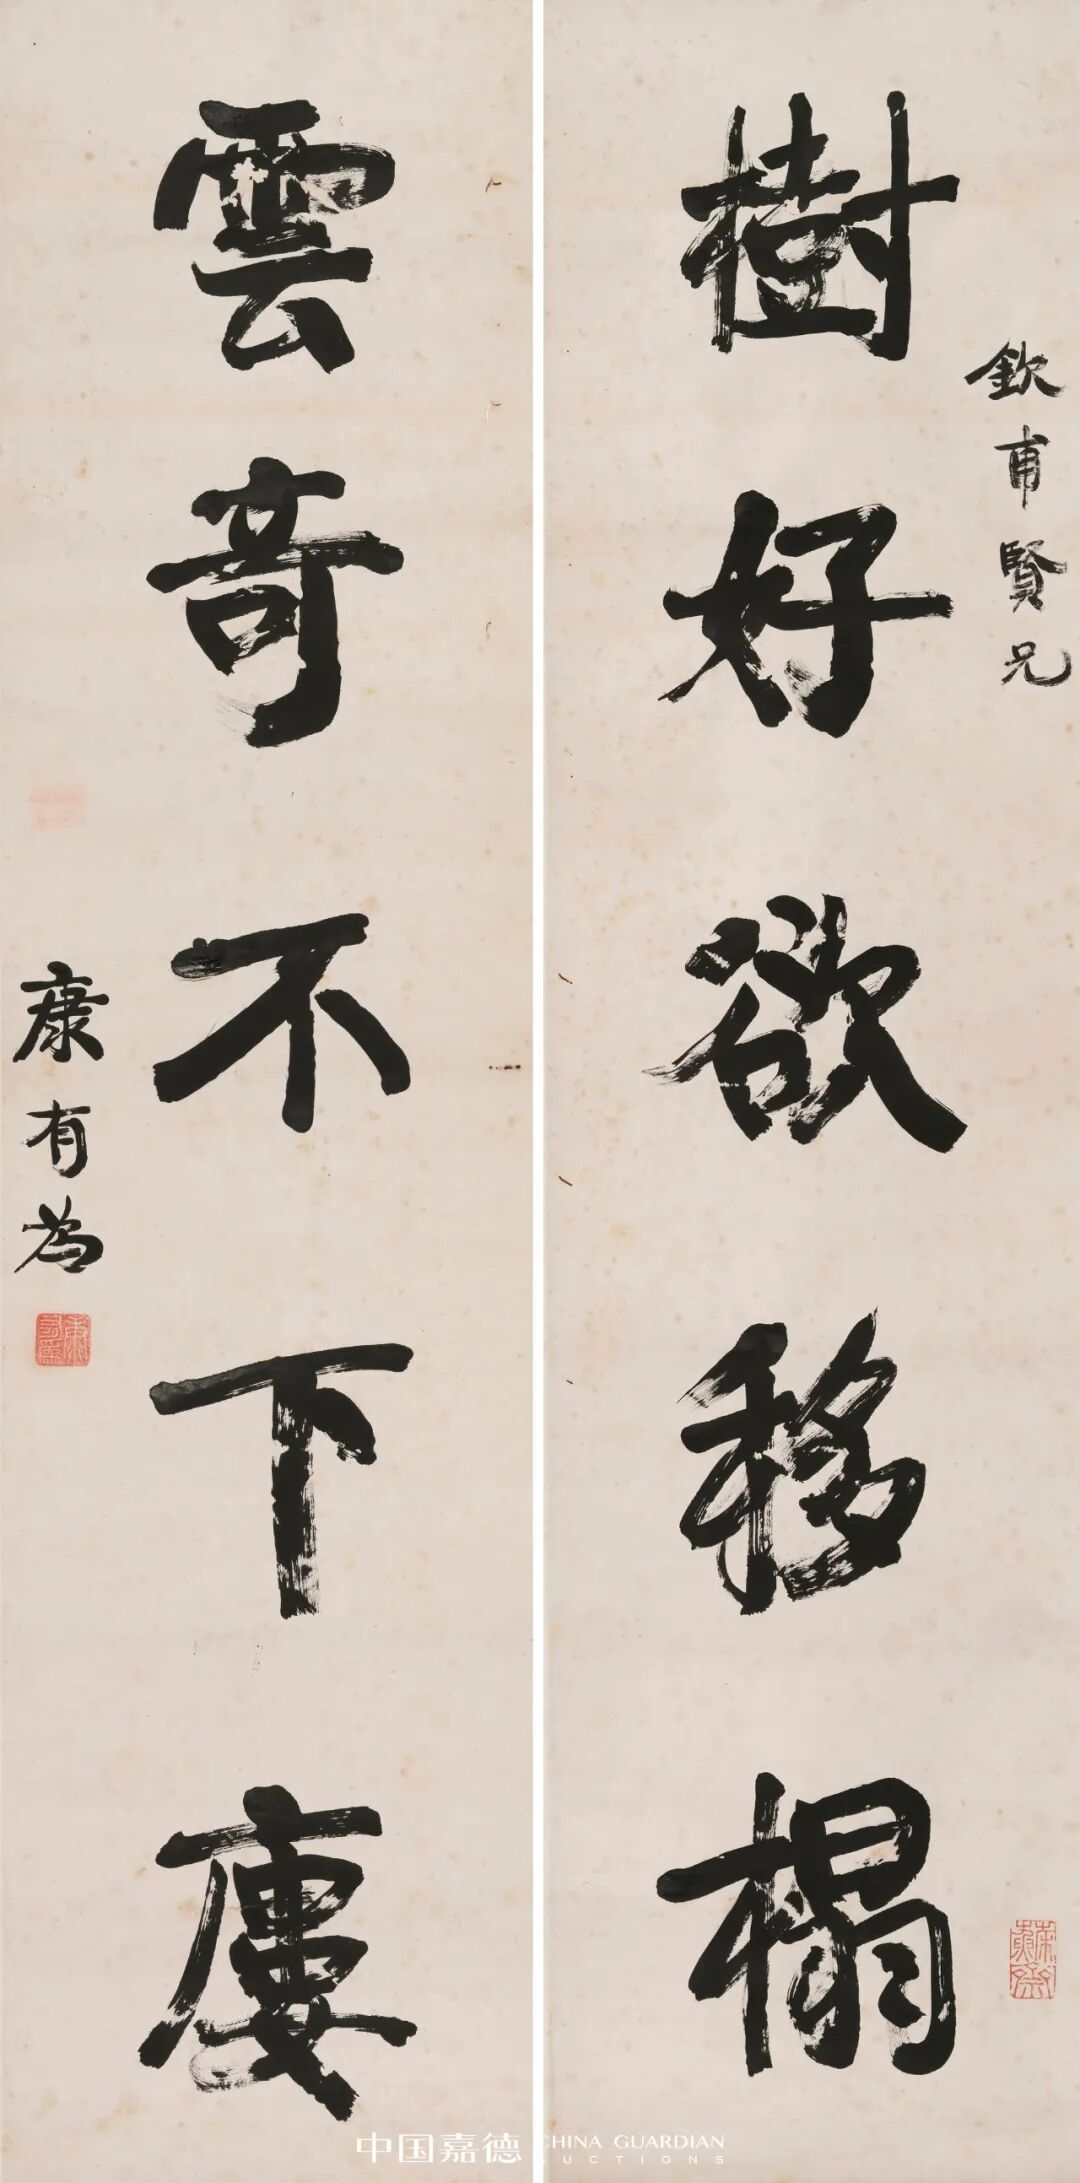 樹好欲移榻
欽甫賢兄
雲奇不下廔
康有為
中国嘉德
CHINA GUARDIAN
AUCTIONS